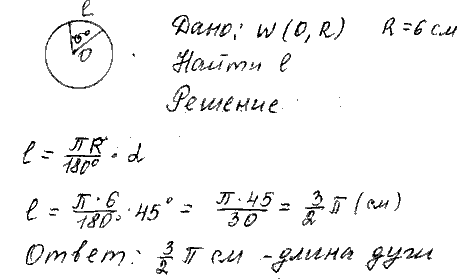 l
O
Дано: W (O, R) R = 6 см
Найти l
Решение
l = πR/180° · α
l = π·6/180° · 45° = π·45/30 = 3/2 π (см)
Ответ: 3/2 π см - длина дуги